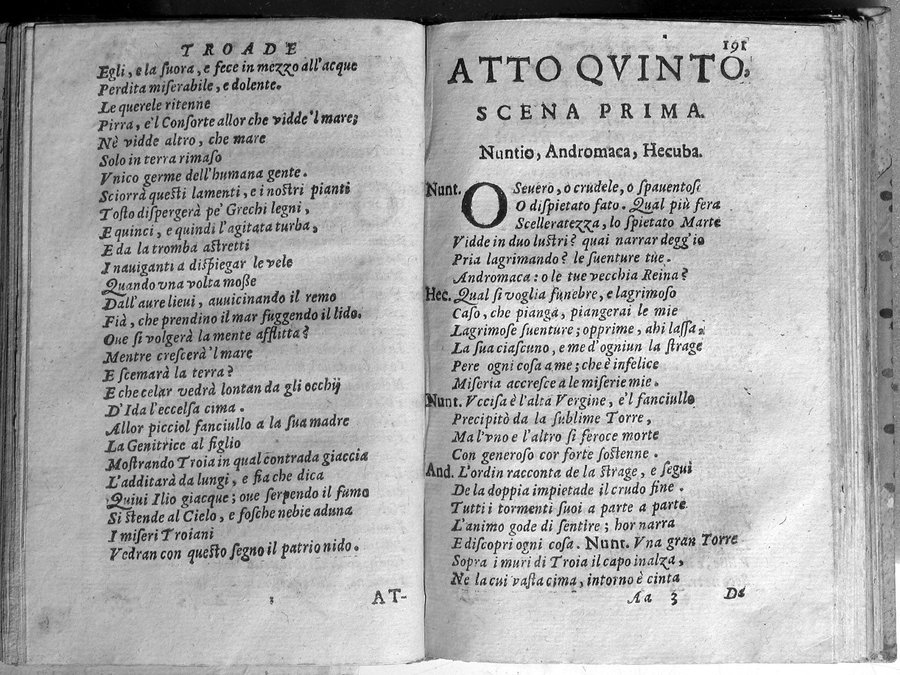 TROADE
Egli, e la suora, e fece in mezzo all'acque
Perdita miserabile, e dolente.
Le querele ritenne
Pirra, e'l Consorte allor che vidde'l mare;
Nè vidde altro, che mare
Solo in terra rimaso
Vnico germe dell'humana gente.
Sciorrà questi lamenti, e i nostri pianti
Tosto dispergerà pe' Grechi legni,
E quinci, e quindi l'agitata turba,
E da la tromba astretti
I nauiganti a dispiegar le vele
Quando vna volta mosse
Dall'aure lieui, auuicinando il remo
Fià, che prendino il mar fuggendo il lido.
Oue si volgerà la mente afflitta?
Mentre crescerà'l mare
E scemarà la terra?
E che celar vedrà lontan da gli occhij
D'Ida l'eccelsa cima.
Allor picciol fanciullo a la sua madre
La Genitrice al figlio
Mostrando Troia in qual contrada giaccia
L'additarà da lungi, e fia che dica
Quiui Ilio giacque; oue serpendo il fumo
Si stende al Cielo, e fosche nebie aduna
I miseri Troiani
Vedran con questo segno il patrio nido.
AT-
191
ATTO QVINTO.
SCENA PRIMA.
Nuntio, Andromaca, Hecuba.
Nunt. O Seuero, o crudele, o spauentosi
O dispietato fato. Qual più fera
Scelleratezza, lo spietato Marte
Vidde in duo lustri? quai narrar degg'io
Pria lagrimando? le suenture tue.
Andromaca: o le tue vecchia Reina?
Hec. Qual si voglia funebre, e lagrimoso
Caso, che pianga, piangerai le mie
Lagrimose suenture; opprime, ahi lassa,
La sua ciascuno, e me d'ogniun la strage
Pere ogni cosa a me; che è infelice
Miseria accresce a le miserie mie.
Nunt. Vccisa è l'alta Vergine, e'l fanciullo
Precipitò da la sublime Torre,
Ma l'vno e l'altro si feroce morte
Con generoso cor forte sostenne.
And. L'ordin racconta de la strage, e segui
De la doppia impietade il crudo fine.
Tutti i tormenti suoi a parte a parte
L'animo gode di sentire; hor narra
E discopri ogni cosa. Nunt. Vna gran Torre
Sopra i muri di Troia il capo inalza,
Ne la cui vasta cima, intorno è cinta
Aa 3 De